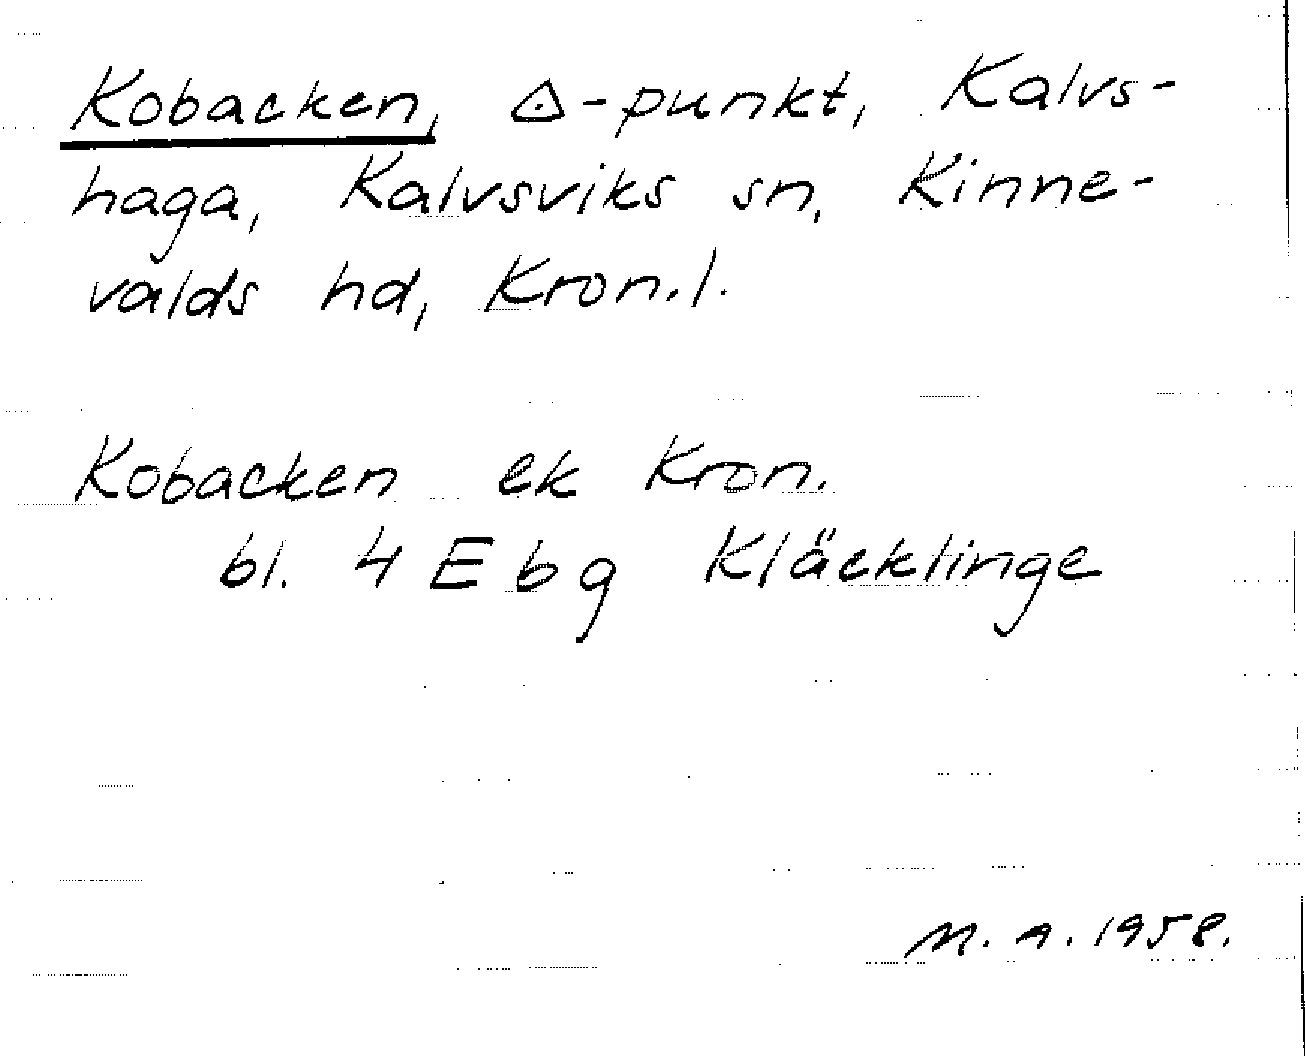 Kobacken, △-punkt, Kalvs-
haga, Kalvsviks sn, Kinne-
valds hd, Kron.l.
Kobacken ek Kron.
bl. 4 E b g Kläcklinge
M. A. 1958.